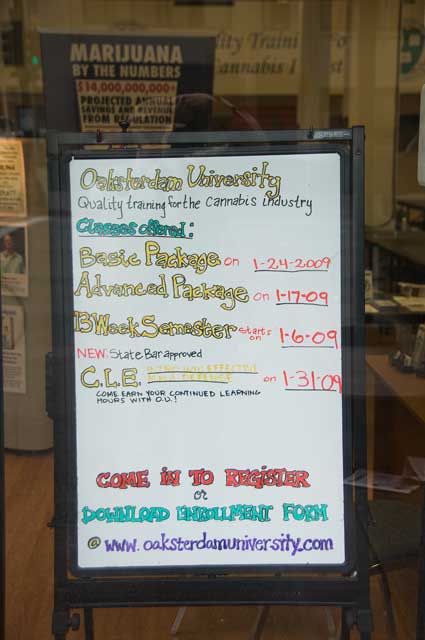 MARIJUANA
BY THE NUMBERS
$14,000,000,000+
PROJECTED ANNUAL
SAVINGS AND REVENUE
FROM REGULATION
Quality Training For
Cannabis
Oaksterdam University
Quality training for the Cannabis industry
Classes offered:
Basic Package on 1-24-2009
Advanced Package on 1-17-09
13 Week Semester starts on 1-6-09
NEW: State Bar approved
C.L.E. on 1-31-09
COME EARN YOUR CONTINUED LEARNING
HOURS WITH O.U.!
COME IN TO REGISTER
or
DOWNLOAD ENROLLMENT FORM
@ www.oaksterdamuniversity.com